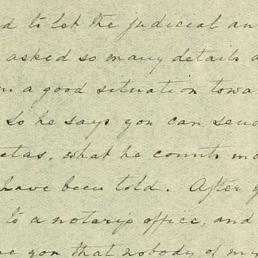 d to let the judicial an
asked so many details a
a good situation towa
So he says you can send
etas, what he counts ma
have been told. After y
to a notary's office, and
you that nobody of my